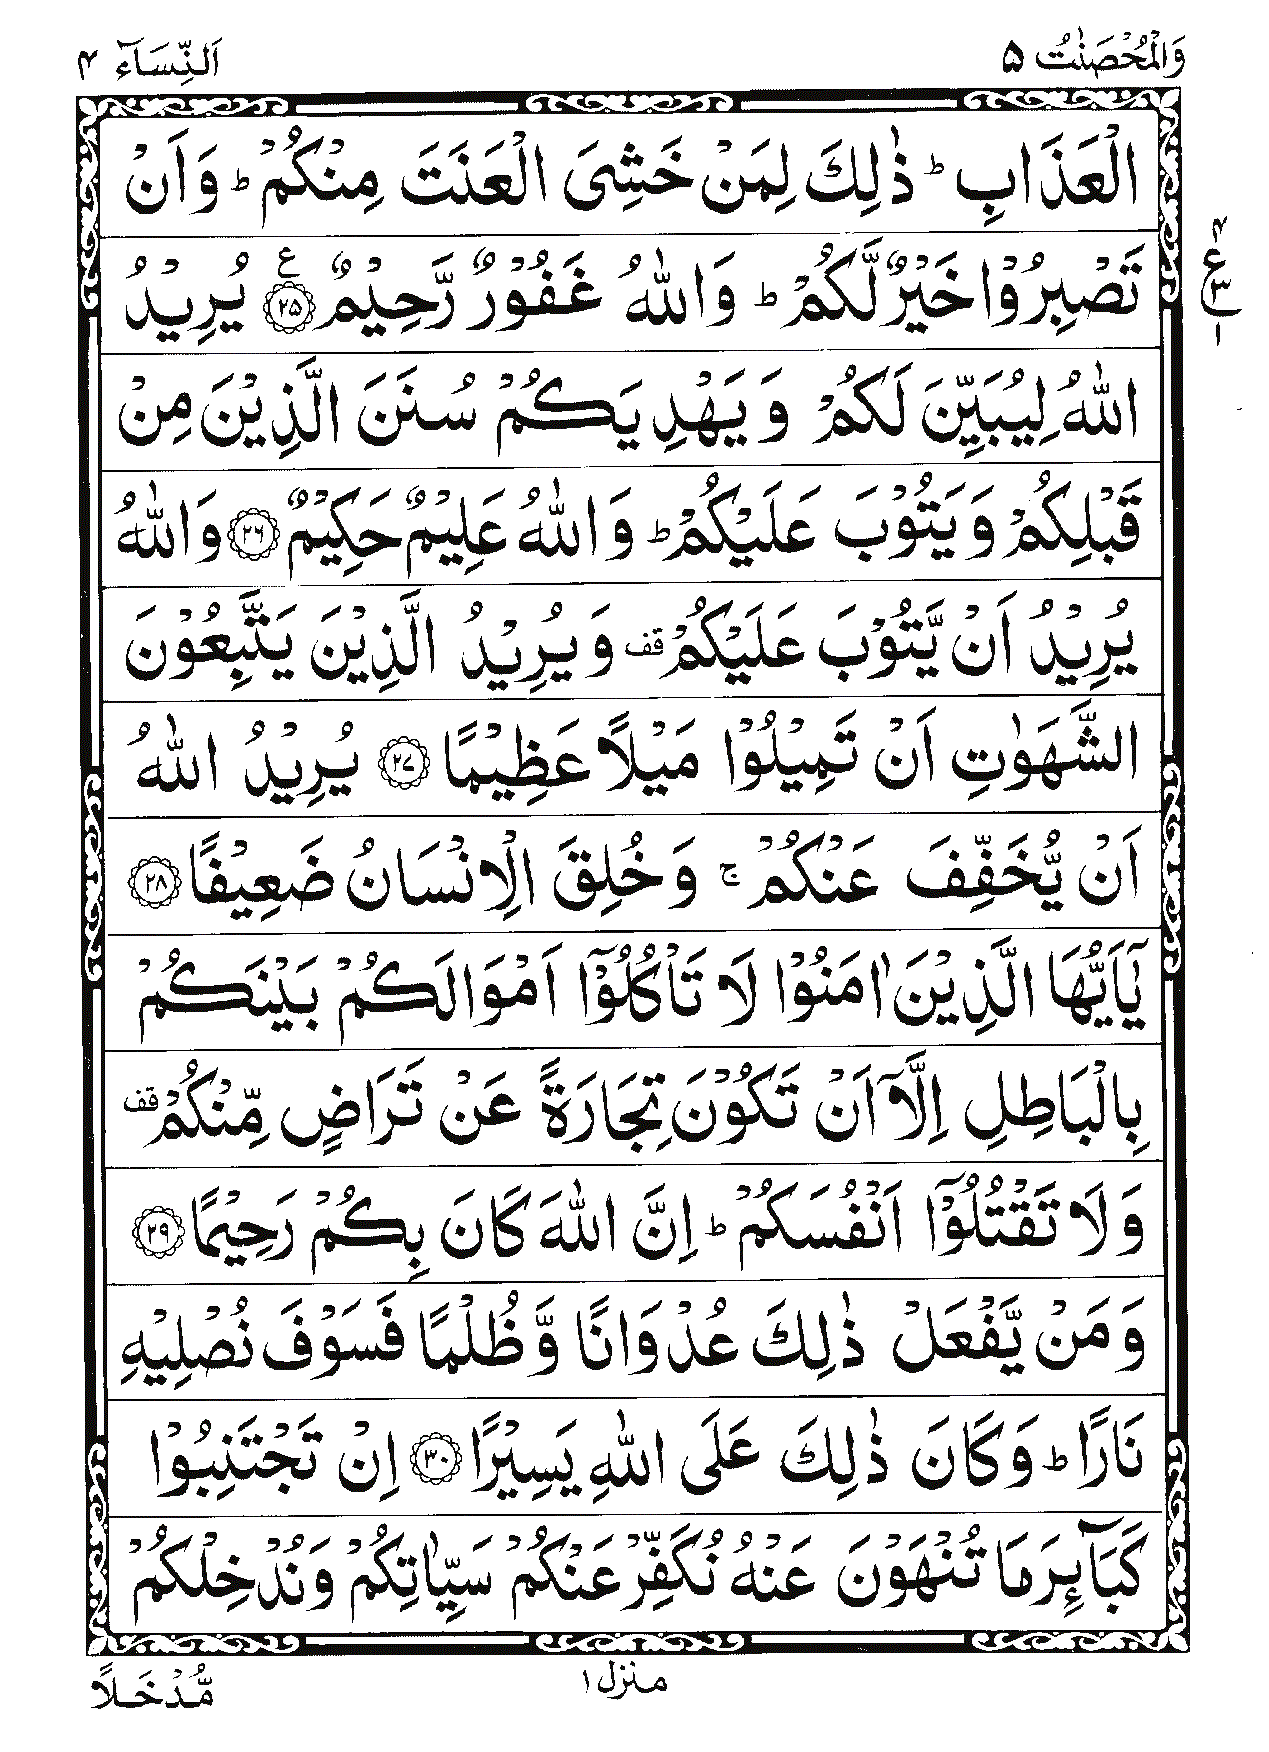 وَالْمُحْصَنٰتُ ۵ اَلنِّسَآء ۴
الْعَذَابِ ؕ ذٰلِكَ لِمَنْ خَشِىَ الْعَنَتَ مِنْكُمْ ؕ وَاَنْ
تَصْبِرُوْا خَيْرٌ لَّكُمْ ؕ وَاللّٰهُ غَفُوْرٌ رَّحِيْمٌ ع ۲۵ يُرِيْدُ
اللّٰهُ لِيُبَيِّنَ لَكُمْ وَيَهْدِيَكُمْ سُنَنَ الَّذِيْنَ مِنْ
قَبْلِكُمْ وَيَتُوْبَ عَلَيْكُمْ ؕ وَاللّٰهُ عَلِيْمٌ حَكِيْمٌ ۲۶ وَاللّٰهُ
يُرِيْدُ اَنْ يَّتُوْبَ عَلَيْكُمْ قف وَيُرِيْدُ الَّذِيْنَ يَتَّبِعُوْنَ
الشَّهَوٰتِ اَنْ تَمِيْلُوْا مَيْلًا عَظِيْمًا ۲۷ يُرِيْدُ اللّٰهُ
اَنْ يُّخَفِّفَ عَنْكُمْ ۚ وَخُلِقَ الْاِنْسَانُ ضَعِيْفًا ۲۸
يٰۤاَيُّهَا الَّذِيْنَ اٰمَنُوْا لَا تَاْكُلُوْۤا اَمْوَالَكُمْ بَيْنَكُمْ
بِالْبَاطِلِ اِلَّاۤ اَنْ تَكُوْنَ تِجَارَةً عَنْ تَرَاضٍ مِّنْكُمْ قف
وَلَا تَقْتُلُوْۤا اَنْفُسَكُمْ ؕ اِنَّ اللّٰهَ كَانَ بِكُمْ رَحِيْمًا ۲۹
وَمَنْ يَّفْعَلْ ذٰلِكَ عُدْوَانًا وَّظُلْمًا فَسَوْفَ نُصْلِيْهِ
نَارًا ؕ وَكَانَ ذٰلِكَ عَلَى اللّٰهِ يَسِيْرًا ۳۰ اِنْ تَجْتَنِبُوْا
كَبَآئِرَ مَا تُنْهَوْنَ عَنْهُ نُكَفِّرْ عَنْكُمْ سَيِّاٰتِكُمْ وَنُدْخِلْكُمْ
مُّدْخَلًا
منزل ۱
۴
ع
۳
۱